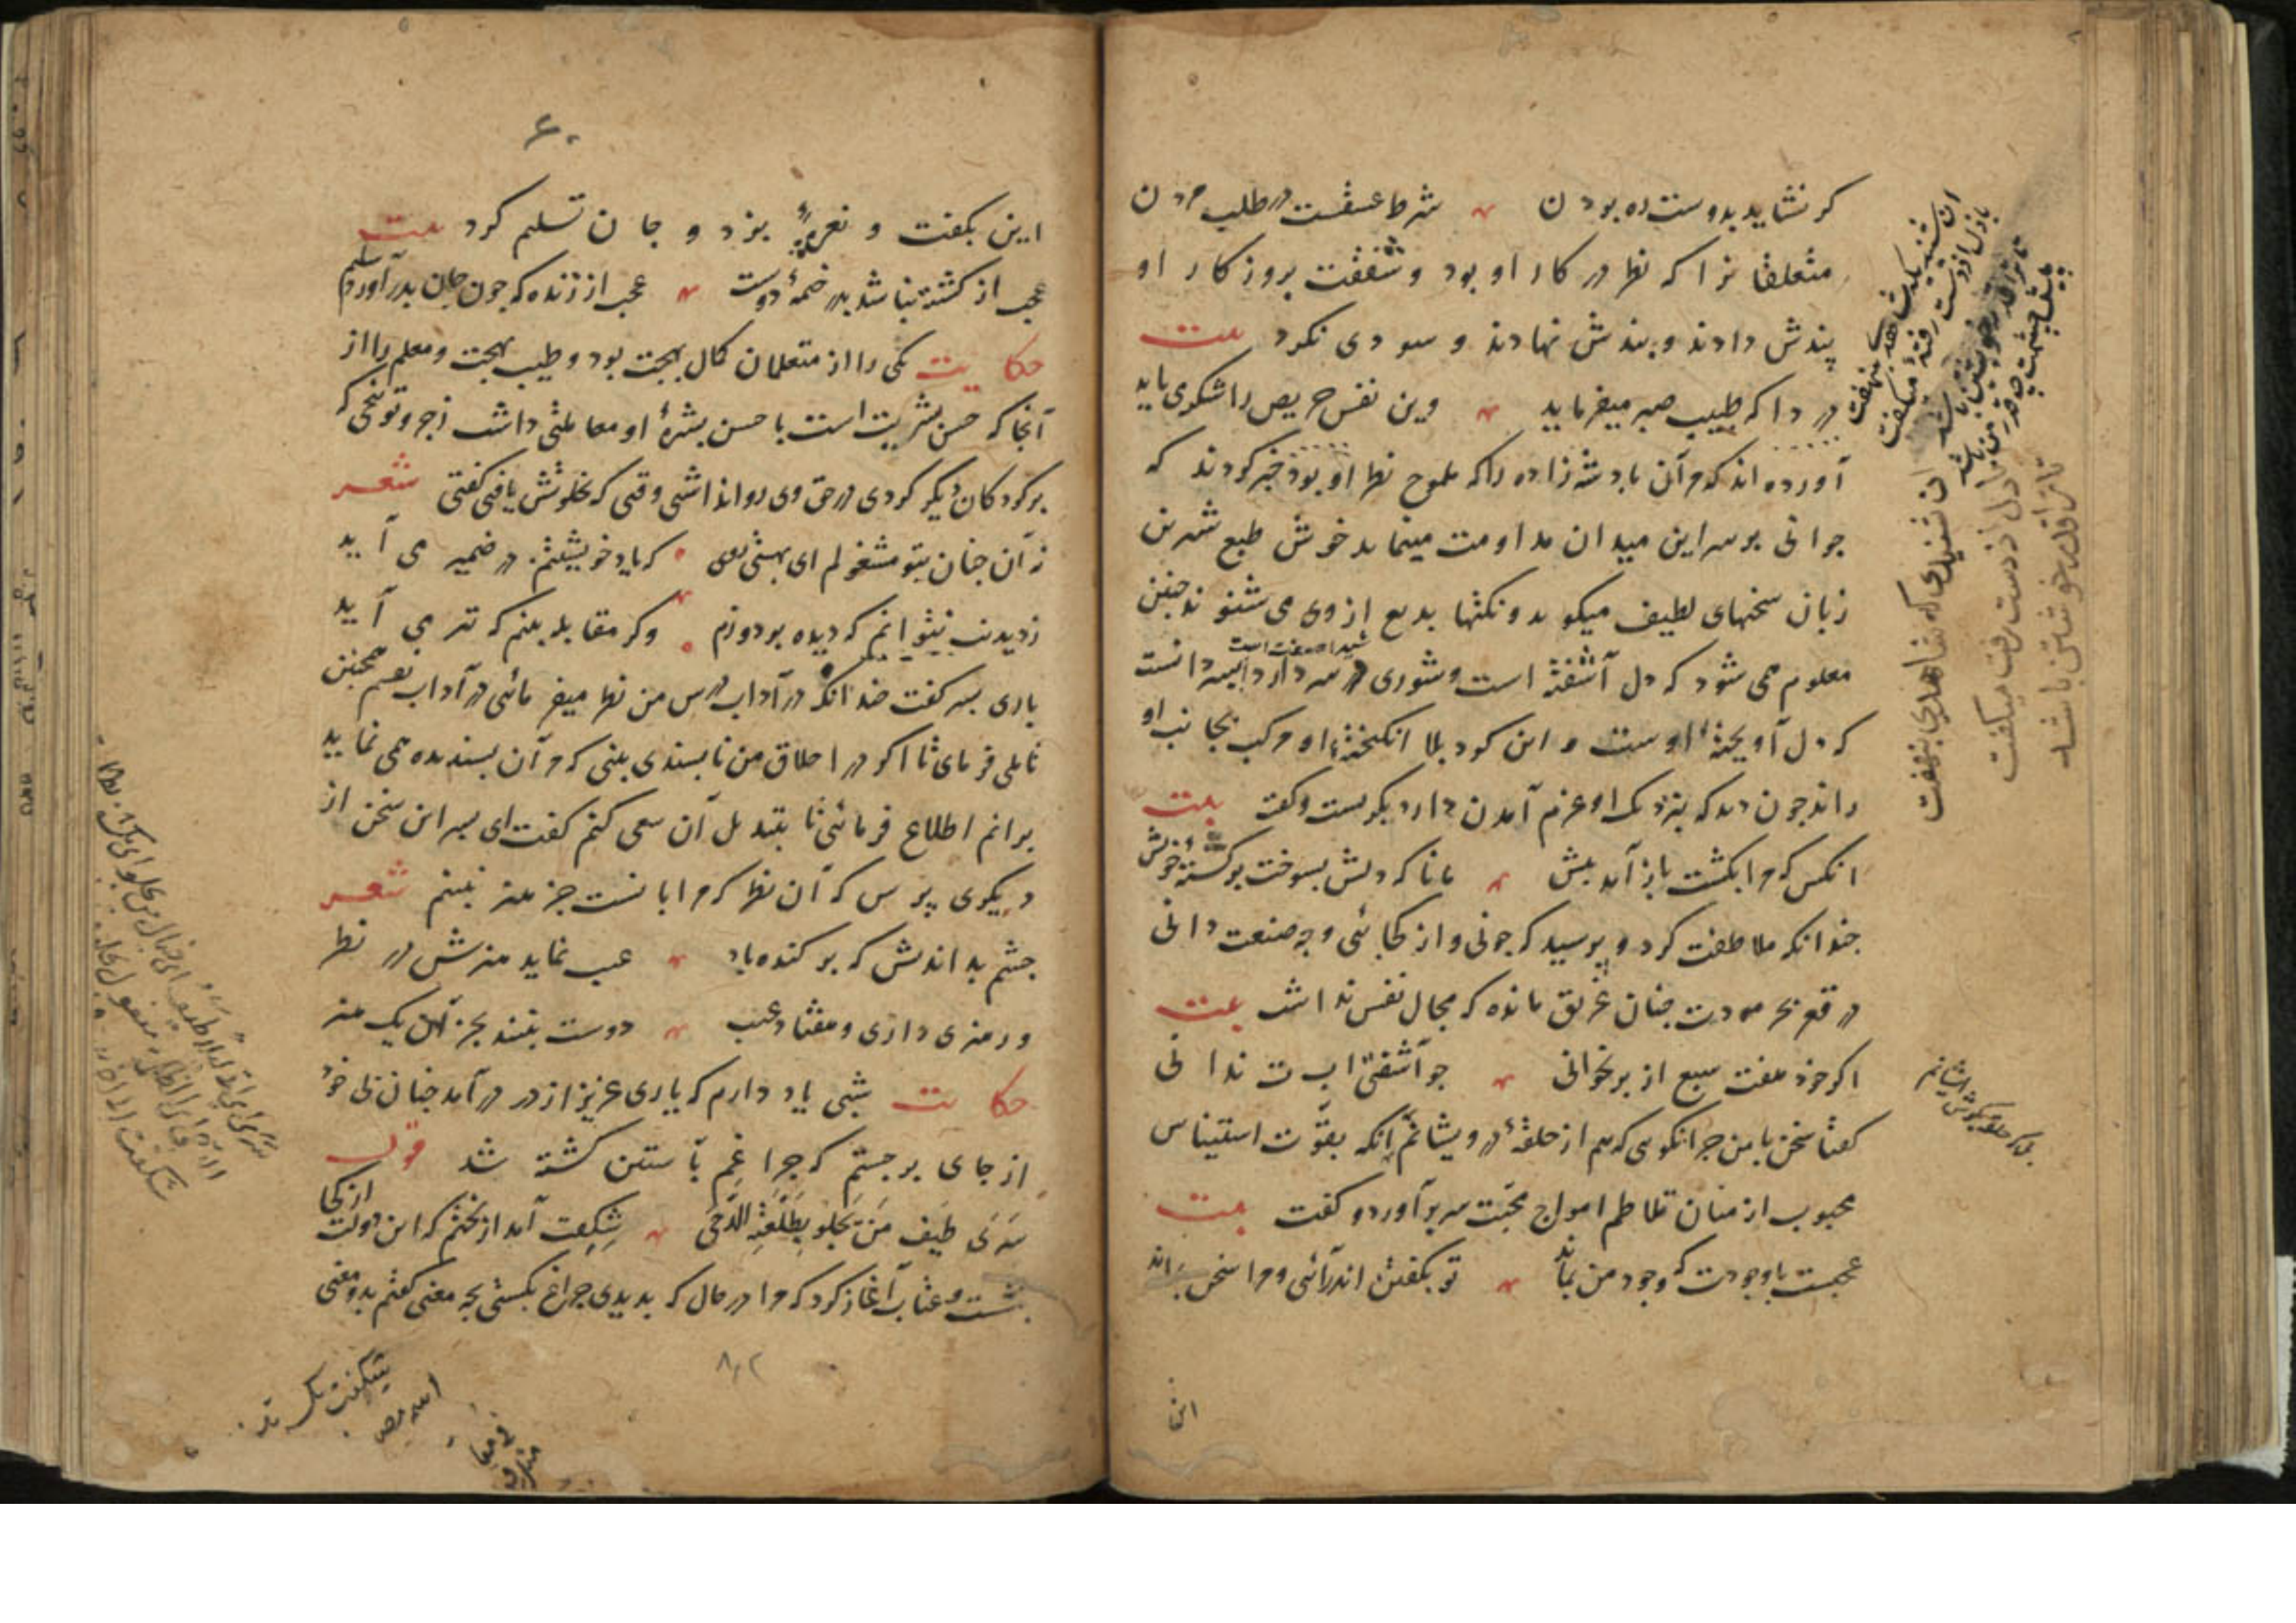 کر نشاید بدوست ره بودن شرط عشقست در طلب مردن
متعلقانرا که نظر در کار او بود و شفقت بروزکار او
پندش دادند و بندش نهادند و سودی نکرد بیت
دردا که طبیب صبر میفرماید وین نفس حریص را شکر می باید
آورده اند که مر آن پادشه زاده را که ملموح نظر او بود خبر کردند که
جوانی بر سر این میدان مداومت مینماید خوش طبع شیرین
زبان سخنهای لطیف میکوید و نکتها بدیع از وی می شنوند چنین
معلوم می شود که دل آشفته است و شوری در سر دارد پسر دانست
که دل آویخته او ست و این کرد بلا انکیخته او مرکب بجانب او
راند چون دید که بنزدیک او عزم آمدن دارد بکریست و کفت بیت
انکس که مرا بکشت باز آمد پیش مانا که دلش بسوخت بر کشتهٔ خویش
چندانکه ملاطفت کرد و پرسید که چونی و از کجائی و چه صنعت دانی
در قعر بحر مودت چنان غریق مانده که مجال نفس نداشت بیت
اکر خود هفت سبع از بر بخوانی چو آشفتی ا ب ت ندانی
کفتا سخن با من چرا نکوئی که هم از حلقهٔ درویشانم آنکه بقوّت استیناس
محبوب از میان تلاطم امواج محبّت سر برآورد و کفت بیت
عجبست با وجودت که وجود من بماند تو بکفتن اندر آئی و مرا سخن بماند
این
آن شنیدی که شاهدی بنهفت
با دل از دست رفتهٔ میکفت
تا ترا قدر خویشتن باشد
پیش چشمت چه قدر من باشد
ان شنیدی که شاهدی بنهفت
با دل از دست رفت میکفت
تا ترا قدر خوشتن باشد
۶۰
این بکفت و نعرهٔ بزد و جان تسلیم کرد بیت
عجب از کشته نباشد بدر خیمهٔ دوست عجب از زنده که چون جان بدر آورد سلیم
حکایت یکی را از متعلمان کمال بهجت بود و طیب بهجت و معلم را از
آنجا که حسن بشریت است با حسن بشرهٔ او معاملتی داشت زجر و توبیخی که
بر کودکان دیکر کردی در حق وی روا نداشتی وقتی که بخلوتش یافتی کفتی شعر
نه آن چنان بتو مشغولم ای بهشتی روی که یاد خویشتنم در ضمیر می آید
ز دیدنت نتوانم که دیده بر دوزم وکر مقابله بینم که تیر می آید
باری پسر کفت چندانکه در آداب درس من نظر میفرمائی در آداب نفسم همچنین
تاملی فرمای تا اکر در اخلاق من ناپسندی بینی که مر آن پسندیده همی نماید
برانم اطلاع فرمائی تا بتبدیل آن سعی کنم کفت ای پسر این سخن از
دیکری پرس که آن نظر که مرا با تست جز هنر نبینم شعر
چشم بد اندیش که برکنده باد عیب نماید هنرش در نظر
ور هنری داری و هفتاد عیب دوست نبیند بجز آن یک هنر
حکایت شبی یاد دارم که یاری عزیز از در در آمد چنان بی خود
از جای برجستم که چراغم بآستین کشته شد قول
سَرَی طَیف مَن یَجلُو بِطَلعَتِهِ الدُّجَی شکفت آمد از بختم که این دولت از کجا
بنشست و عتاب آغاز کرد که مرا در حال که بدیدی چراغ بکشتی بچه معنی کفتم بدو معنی
۸۰۲